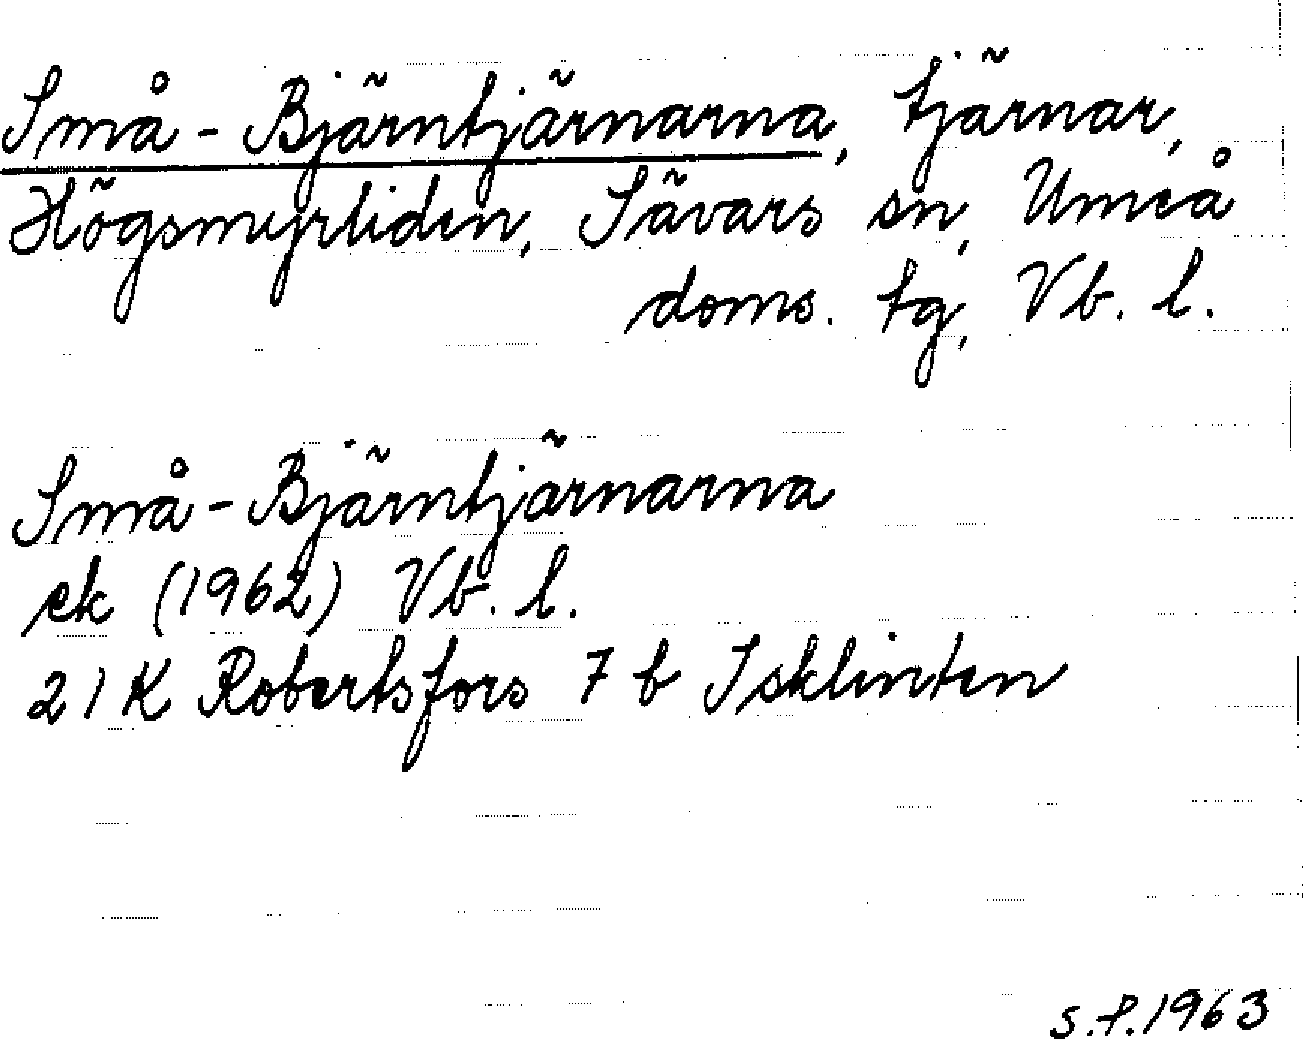 Små-Bjärntjärnarna, tjärnar,
Högsmyrliden, Sävars sn, Umeå
doms. tg, Vb. l.
Små-Bjärntjärnarna
ek (1962) Vb. l.
21K Robertsfors 7 b Isklinten
S.P.1963